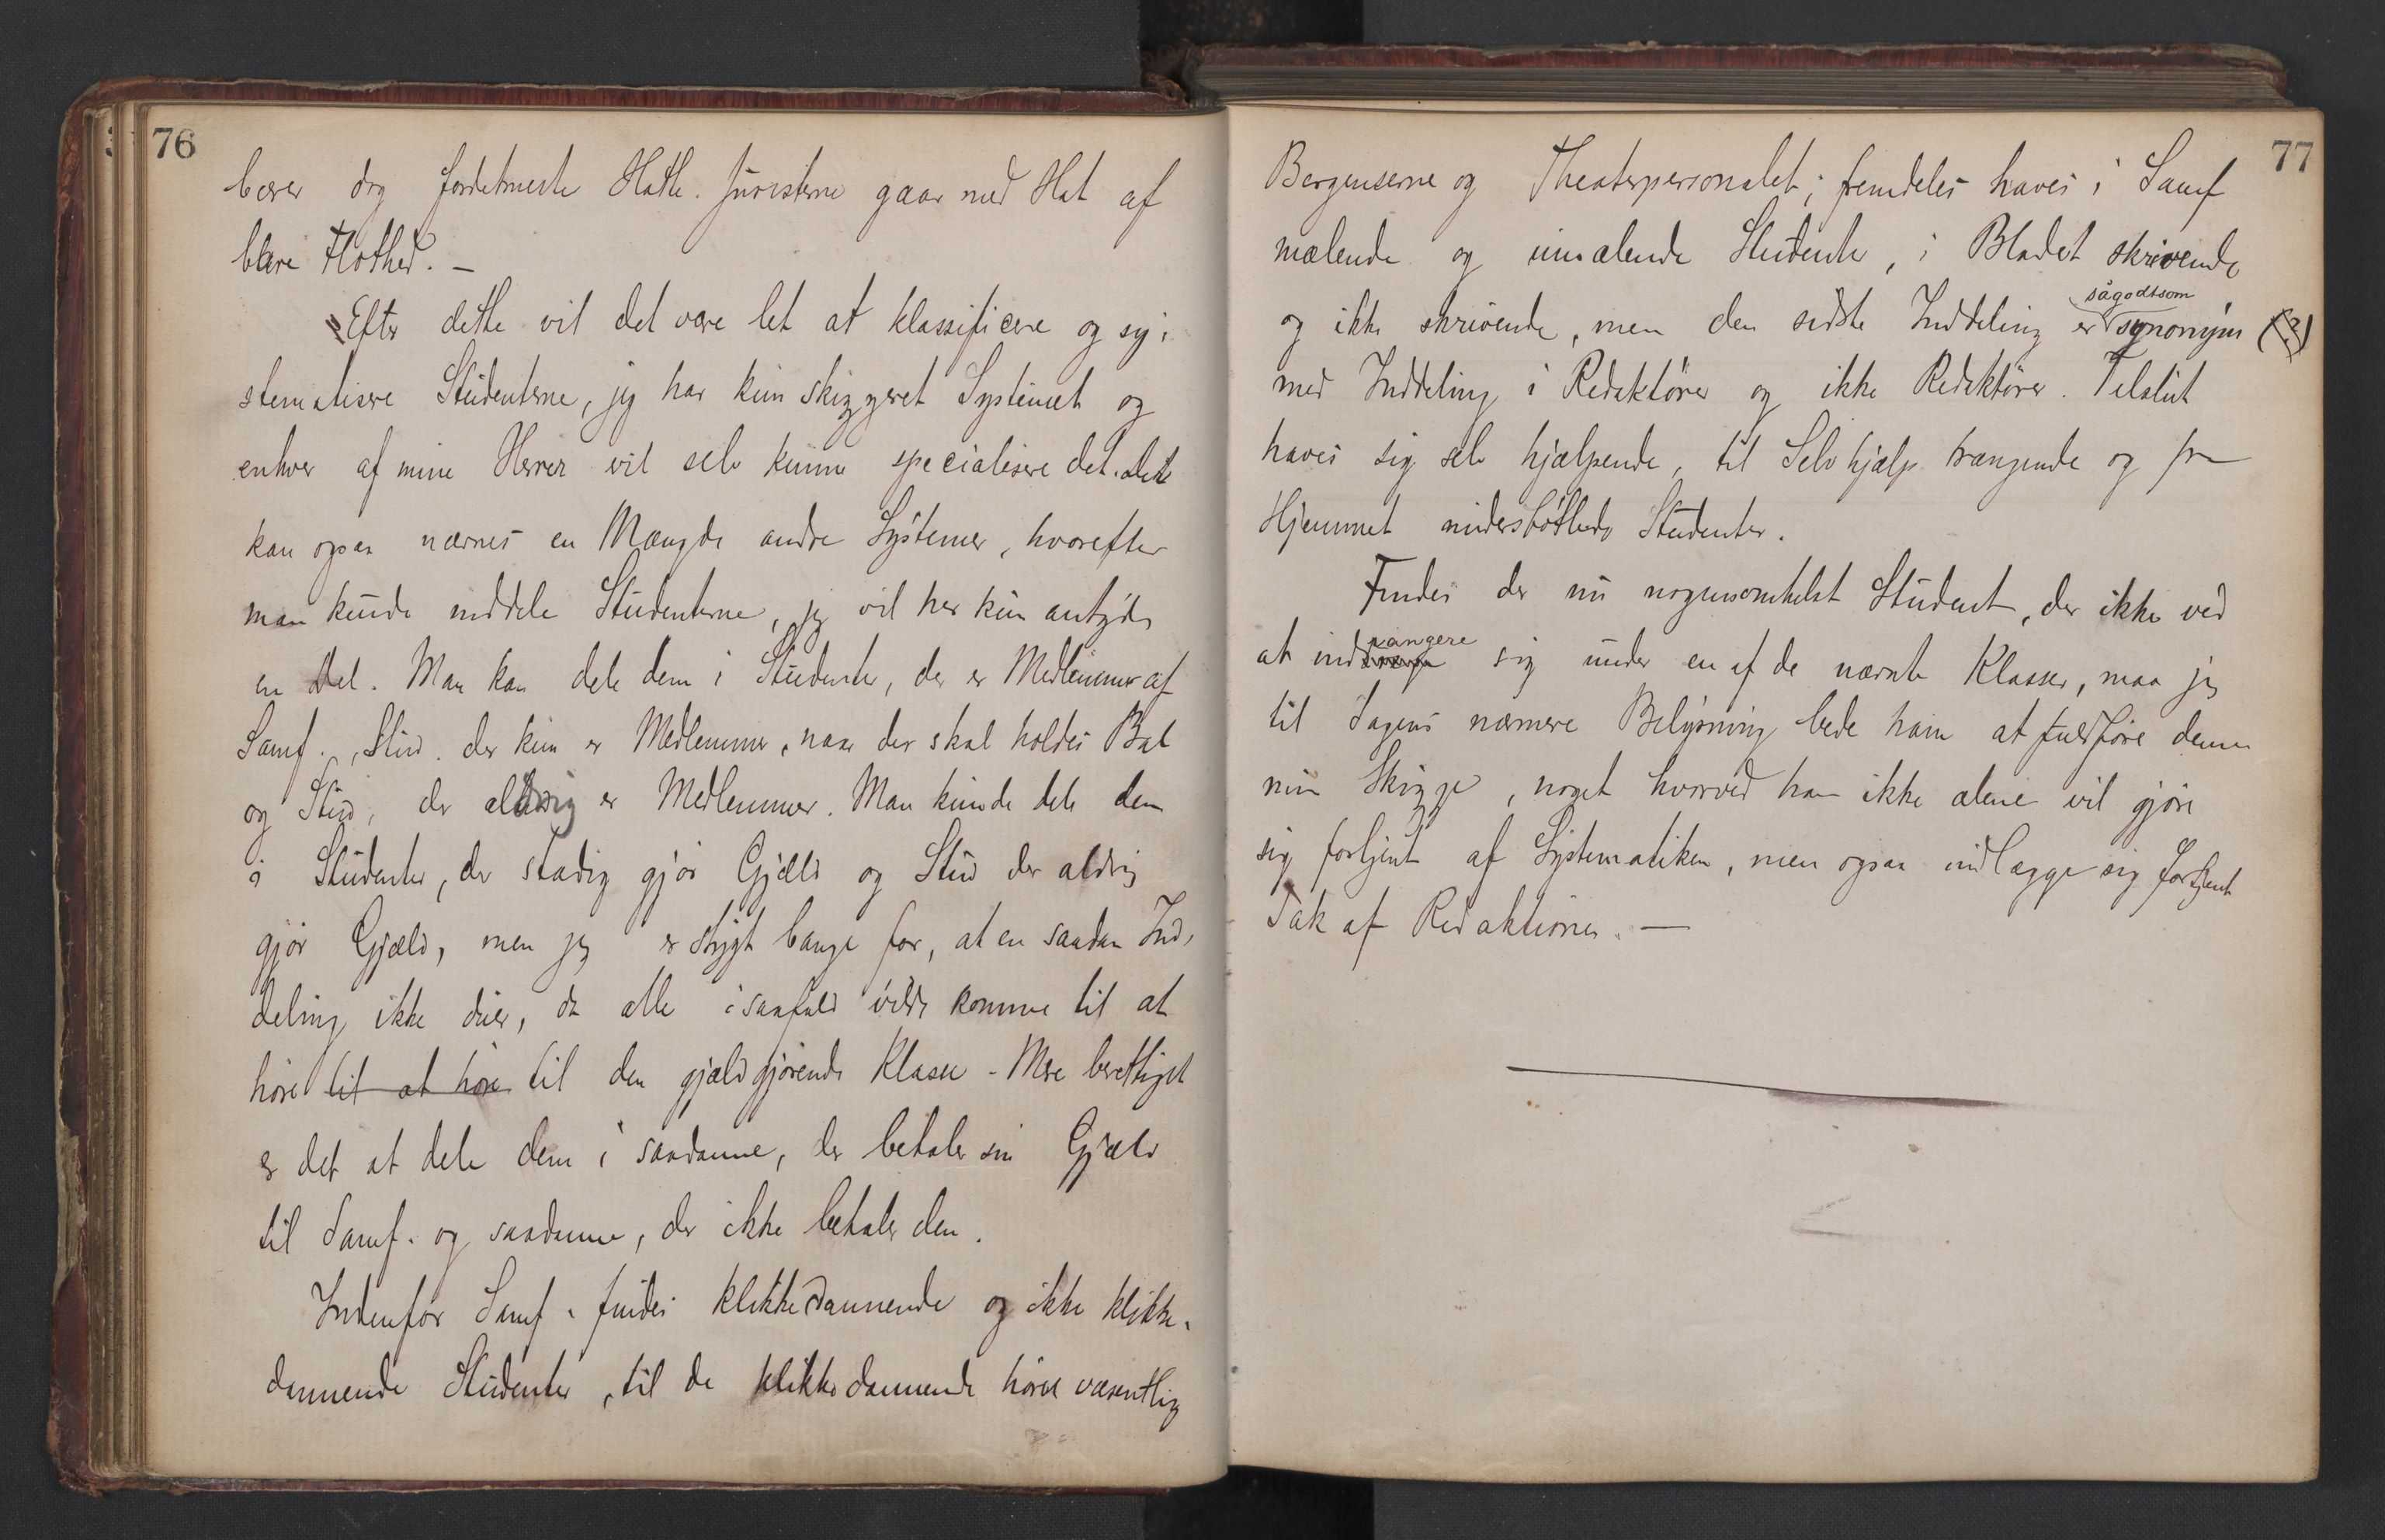 76
bærer dog fordetmeste Hatte. Juristerne gaar med Hat af
bare Flothed. —
Efter dette vil det være let at klassificere og sy-
stematisere Studenterne, jeg har kun skizzeret Systemet og
enhver af mine Herrer vil selv kunne specialisere det. Dette
kan ogsaa nævnes en Mængde andre Systemer, hvorefter
man kunde inddele Studenterne, jeg vil her kun antyde
en Del. Man kan dele dem i Studenter, der er Medlemmer af
Samf., Stud. der kun er Medlemmer, naar der skal holdes Bal
og Stud, der aldrig er Medlemmer. Man kunde dele dem
i Studenter, der stadig gjør Gjæld og Stud der aldrig
gjør Gjæld, men jeg er stygt bange for, at en saadan Ind-
deling ikke duer, da alle isaafald vilde komme til at
høre til at høre til den gjældgjørende Klasse - Mere berettiget
er det at dele dem i saadanne, der betaler sin Gjæld
til Samf. og saadanne, der ikke betaler den.
Indenfor Samf. findes klikkedannende og ikke klikke-
dannende Studenter, til de klikkedannende hører væsentlig
77
Bergenserne og Theaterpersonalet; fremdeles haves i Samf
mælende og umælende Studenter, i Bladet skrivende
og ikke skrivende, men den sidste Inddeling er sågodtsom synonym (?)
med Inddeling i Redaktører og ikke Redaktører. Tilslut
haves sig selv hjælpende, til Selvhjælp trængende og fra
Hjemmet understøttede Studenter.
Findes der nu nogensomhelst Student, der ikke ved
at indrangere sig under en af de nævnte Klasser, maa jeg
til Sagens nærmere Belysning bede ham at fuldføre denne
min Skizze, noget hvorved han ikke alene vil gjøre
sig fortjent af Systematiken, men ogsaa indlægge sig fortjent
Tak af Redaktionen. —